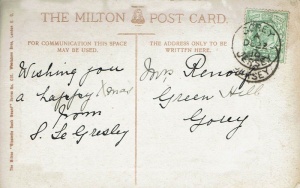 THE MILTON POST CARD.
FOR COMMUNICATION THIS SPACE
MAY BE USED.
THE ADDRESS ONLY TO BE
WRITTEN HERE.
Wishing you
a happy Xmas
from
S. Le Gresley
Mrs Renou
Green Hill
Gorey
JERSEY